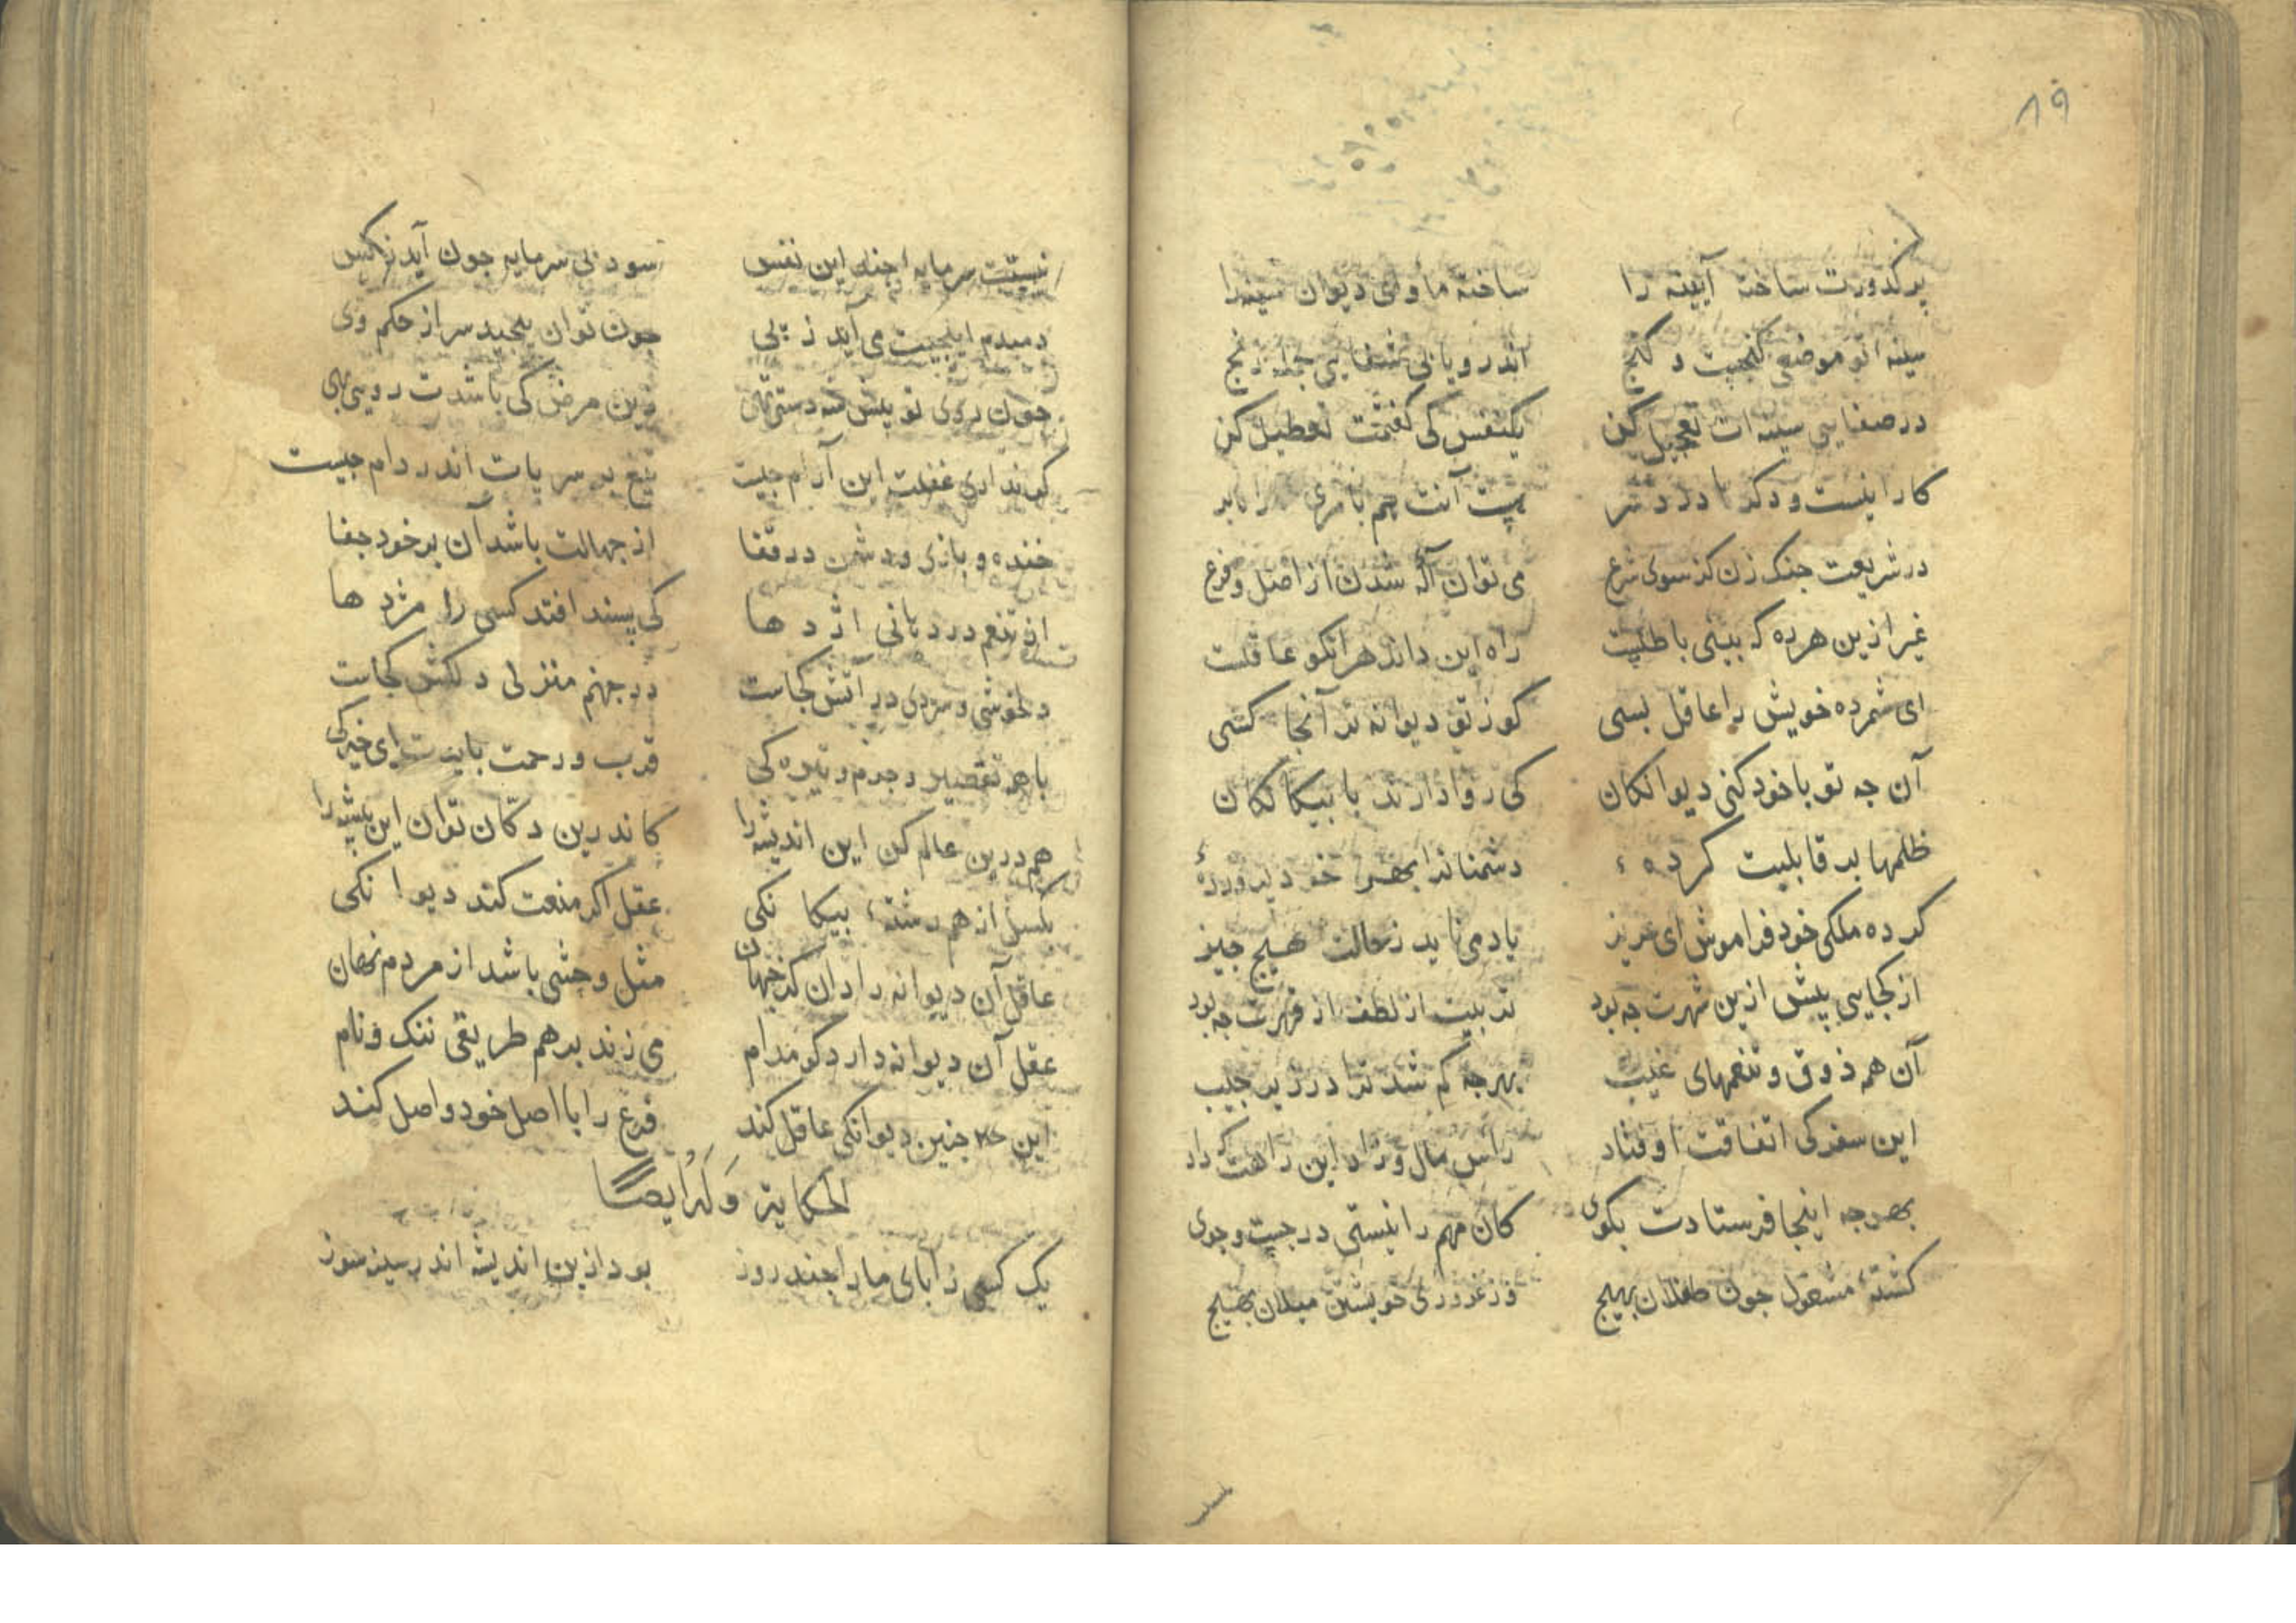 ۸۹
پرکدورت ساخته آیینه را ساخته مأوای دیوان سینه را
سینه اتو موضع گنجیست د کنج اندرو یابی شفایی جمله رنج
در صفایی سینه ات تعجیل کن یکنفس کی گفتمت تعطیل کن
کار اینست ودکر درد سر
در شریعت جنک زن کز سوی شرع می توان آگه شدن از اصل و فرع
غیر ازین هر ره که بینی باطلیست راه این داند هرانکو عاقلست
ای شمرده خویش را عاقل بسی کو ز تو دیوانه تر آنجا کسی
آن جه تو با خود کنی دیوانکان کی روا دارند با بیکانکان
ظلمها بر قابلیت کرده ء دشمنانرا بهر خود پرورده ء
کرده ملکی خود فراموش ای عزیز یاد می ناید ز حالت هیج جیز
از کجایی پیش ازین شهرت جه بود تربیت از لطف از قهرت جه بود
آن همه ذوق و تنعمهای غیب بهر جه کم شد ترا در زیر جیب
این سفر کی اتفاقت اوفتاد راس مال و زاد این راهت که داد
بهر جه اینجا فرستادت بکوی کان مهم را نیستی در جست وجوی
کشتهٔ مشغول جون طفلان بهیج وز غروری خویشتن میلان بهیج
نیست سرمایه اجند این نفس سود بی سرمایه جون آید ز کس
دمبدم ایلجیت می آید ز پی جون توان پیجید سر از حکم وی
جون روی تو پیش شه دستی تهی زین مرض کی باشدت رویی بهی
کر نداری غفلت این آرام جیست تیغ بر سر پات اندر دام جیست
خنده و بازی و دشمن در قفا از جهالت باشد آن بر خود جفا
از تنعم در دهانی اژدها کی پسند افتد کسی را مژدها
دلخوشی و سردی در آتش کجاست در جهنم منزلی دلکش کجاست
با هم تقصیر و جرم و تیره کی قرب و رحمت بایدت ای خیرکی
هم درین عالم کن این اندیشه را کاندرین دکان توان این پیشه را
بکسل از هم رشتهٔ بیکانکی عقل اکر منعت کند دیوانکی
عاقل آن دیوانه را دان کز جهان مثل وحشی باشد از مردم نهان
عقل آن دیوانه دارد کو مدام می زند بر هم طریقی ننک و نام
این جنین دیوانکی عاقل کند فرع را با اصل خود واصل کند
الحکایة وَلَهُ ایضًا
یک کسی ز آبای ما را جند روز بود ازین اندیشه اندر سینه سوز